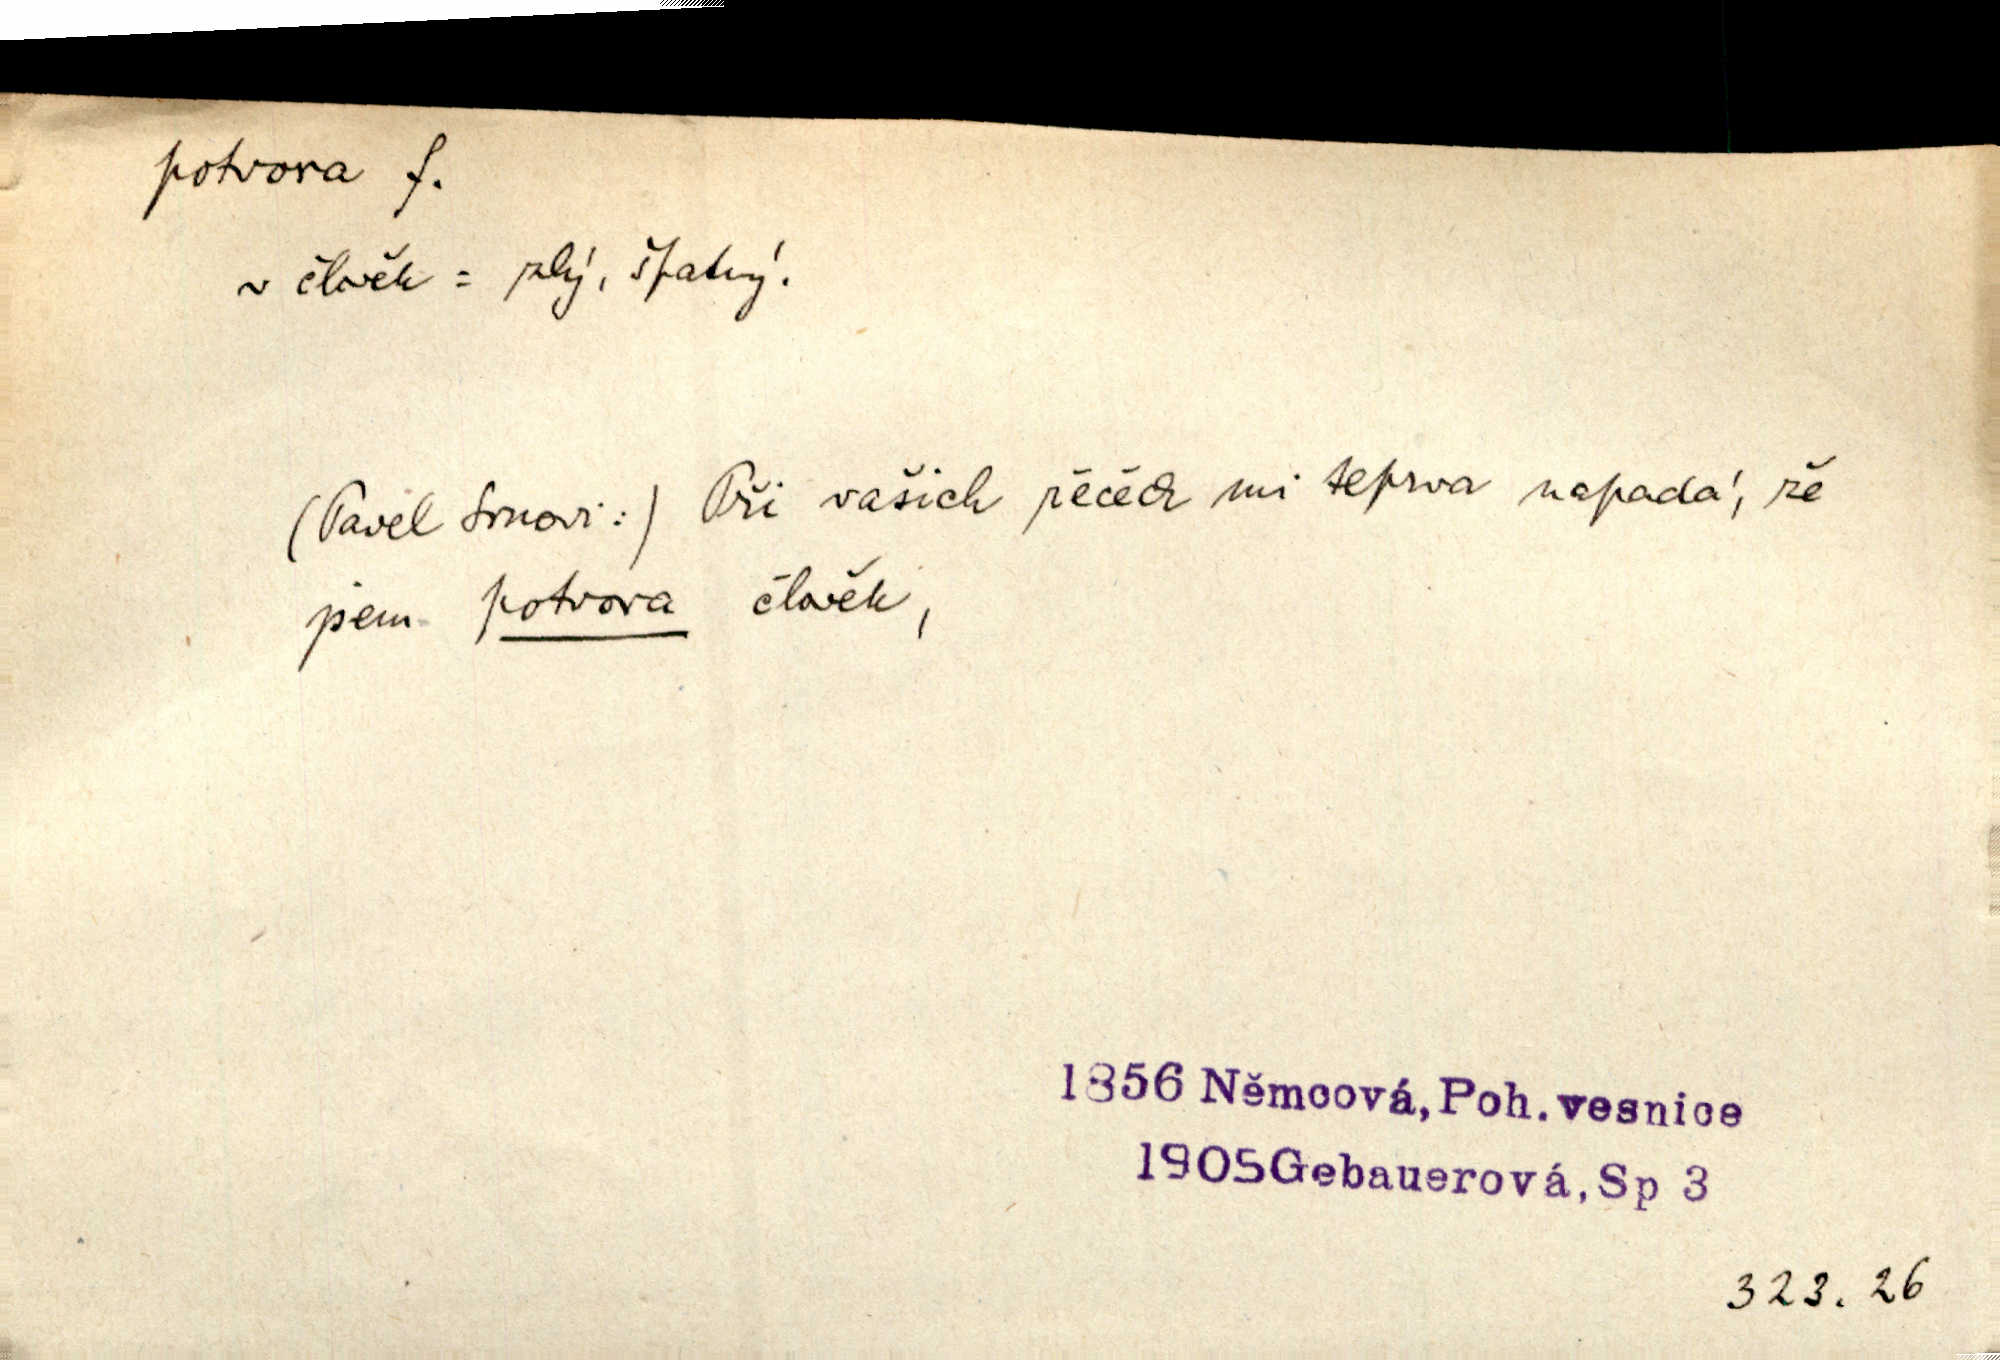 potvora f.
~ člověk = zlý, špatný.
(Pavel Srnovi:) Při vašich řečech mi teprva napadá, že
jsem potvora člověk,
1856 Němcová, Poh. vesnice
1905 Gebauerová, Sp 3
323. 26